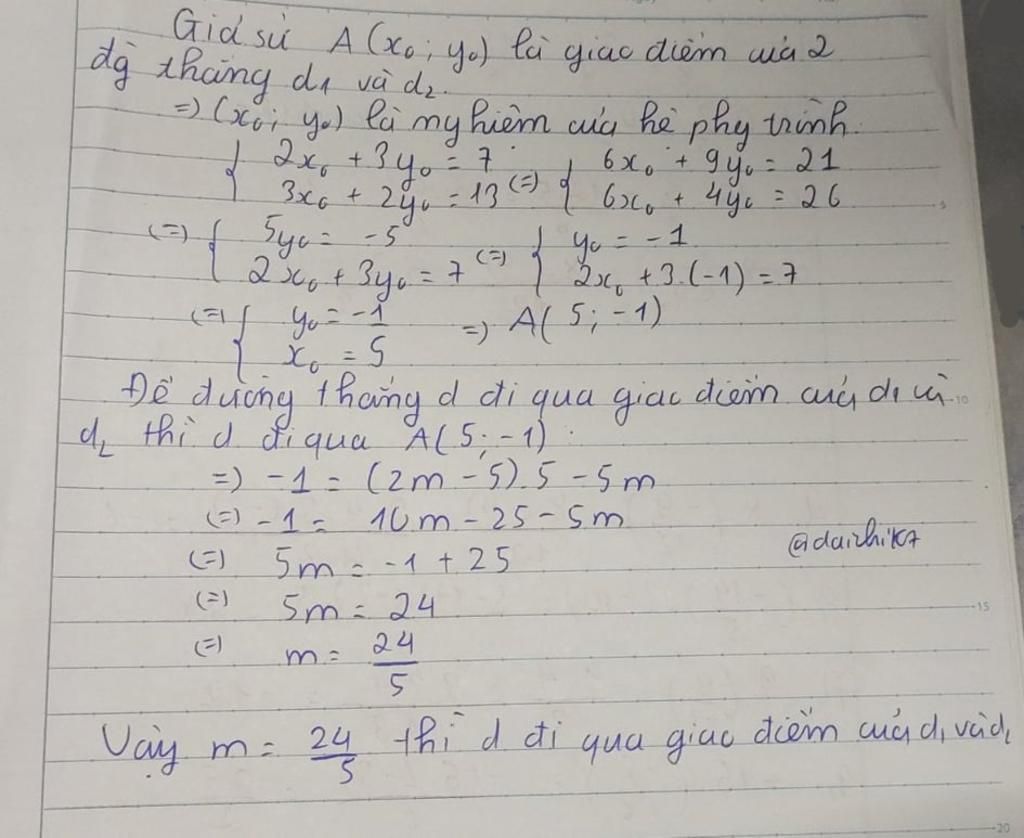 Giả sử A(x₀; y₀) là giao điểm của 2
đg thẳng d₁ và d₂.
=> (x₀; y₀) là nghiệm của hệ phg trình
{ 2x₀ + 3y₀ = 7 (=) { 6x₀ + 9y₀ = 21
3x₀ + 2y₀ = 13 6x₀ + 4y₀ = 26
(=) { 5y₀ = -5 (=) { y₀ = -1
2x₀ + 3y₀ = 7 2x₀ + 3.(-1) = 7
(=) { y₀ = -1 => A(5; -1)
x₀ = 5
Để đường thẳng d đi qua giao điểm của d₁ và
d₂ thì d đi qua A(5; -1) :
=) -1 = (2m - 5).5 - 5m
(=) -1 = 10m - 25 - 5m
(=) 5m = -1 + 25
@daizhik7
(=) 5m = 24
(=) m = 24/5
Vậy m = 24/5 thì d đi qua giao điểm của d₁ và d₂
10
15
20